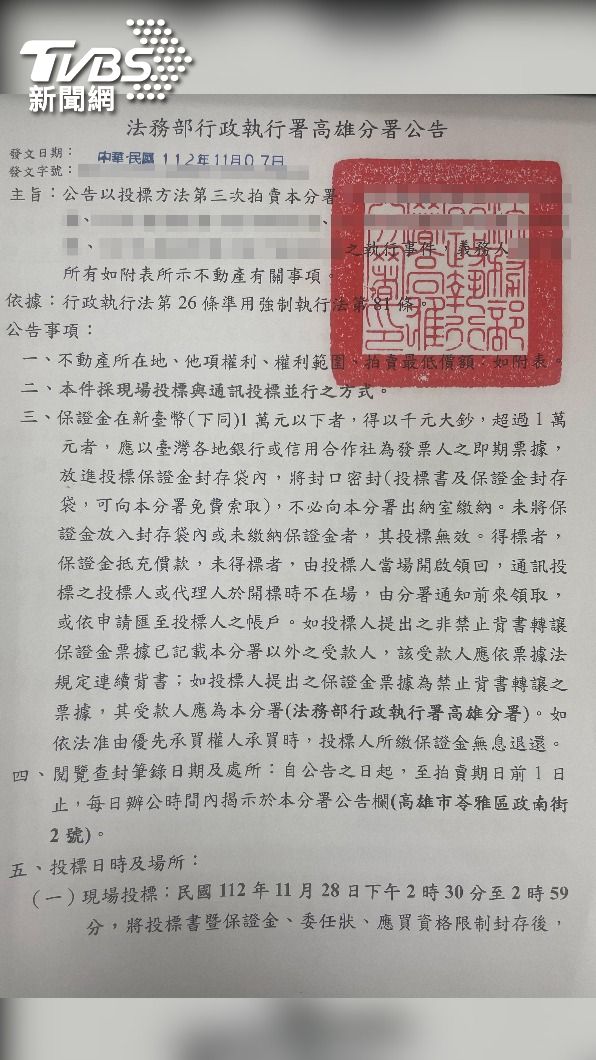 TVBS
新聞網
法務部行政執行署高雄分署公告
發文日期：中華民國 112年11月07日
發文字號：
主旨：公告以投標方法第三次拍賣本分署
、
、
之執行事件，義務人
所有如附表所示不動產有關事項。
依據：行政執行法第 26 條準用強制執行法第 81 條。
公告事項：
一、不動產所在地、他項權利、權利範圍、拍賣最低價額：如附表。
二、本件採現場投標與通訊投標並行之方式。
三、保證金在新臺幣(下同)1 萬元以下者，得以千元大鈔，超過 1 萬
元者，應以臺灣各地銀行或信用合作社為發票人之即期票據，
放進投標保證金封存袋內，將封口密封(投標書及保證金封存
袋，可向本分署免費索取)，不必向本分署出納室繳納。未將保
證金放入封存袋內或未繳納保證金者，其投標無效。得標者，
保證金抵充價款，未得標者，由投標人當場開啟領回，通訊投
標之投標人或代理人於開標時不在場，由分署通知前來領取，
或依申請匯至投標人之帳戶。如投標人提出之非禁止背書轉讓
保證金票據已記載本分署以外之受款人，該受款人應依票據法
規定連續背書；如投標人提出之保證金票據為禁止背書轉讓之
票據，其受款人應為本分署(法務部行政執行署高雄分署)。如
依法准由優先承買權人承買時，投標人所繳保證金無息退還。
四、閱覽查封筆錄日期及處所：自公告之日起，至拍賣期日前 1 日
止，每日辦公時間內揭示於本分署公告欄(高雄市苓雅區政南街
2 號)。
五、投標日時及場所：
(一)現場投標：民國 112 年 11 月 28 日下午 2 時 30 分至 2 時 59
分，將投標書暨保證金、委任狀、應買資格限制封存後，